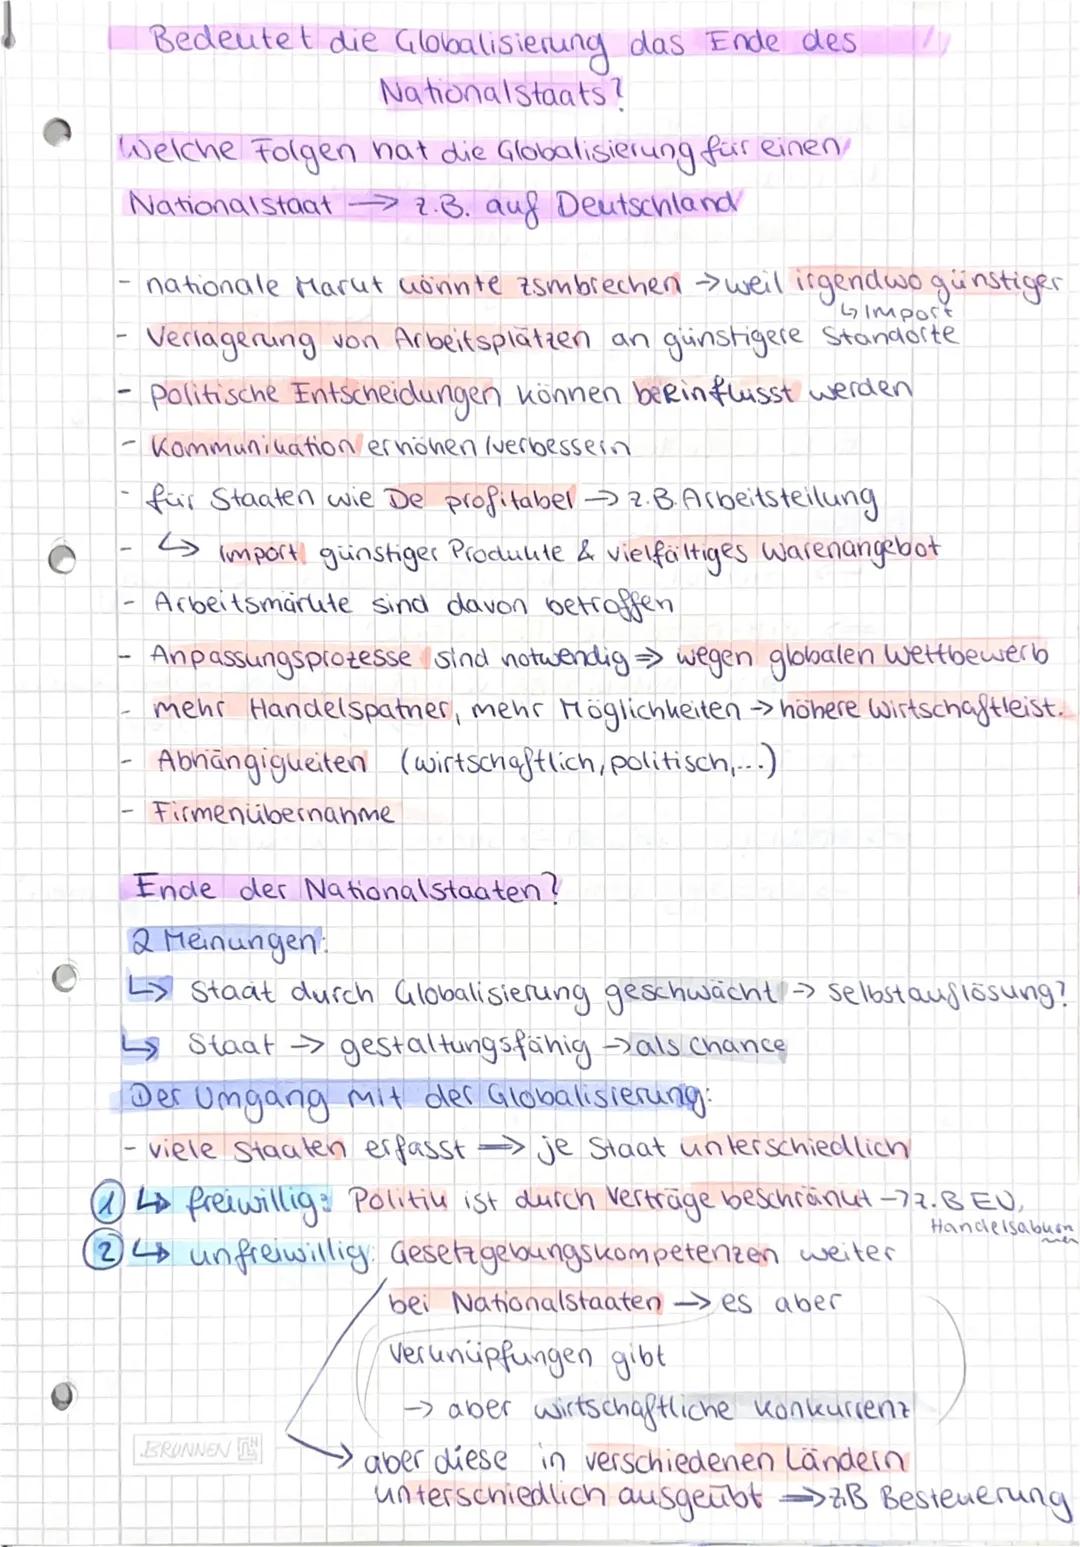 Bedeutet die Globalisierung das Ende des
Nationalstaats?
Welche Folgen hat die Globalisierung für einen
Nationalstaat → z.B. auf Deutschland
- nationale Markt könnte zsmbrechen → weil irgendwo günstiger
↳ Import
- Verlagerung von Arbeitsplätzen an günstigere Standorte
- politische Entscheidungen können beeinflusst werden
- Kommunikation erhöhen/verbessern
- für Staaten wie De profitabel → z.B. Arbeitsteilung
- ↳ Import günstiger Produkte & vielfältiges Warenangebot
- Arbeitsmärkte sind davon betroffen
- Anpassungsprozesse sind notwendig ⇒ wegen globalen Wettbewerb
- mehr Handelspatner, mehr Möglichkeiten → höhere Wirtschaftleist.
- Abhängigkeiten (wirtschaftlich, politisch,...)
- Firmenübernahme
Ende der Nationalstaaten?
2 Meinungen:
↳ Staat durch Globalisierung geschwächt → selbstauflösung?
↳ Staat → gestaltungsfähig → als chance
Der Umgang mit der Globalisierung:
- viele Staaten erfasst ⇒ je Staat unterschiedlich
① ↳ freiwillig: Politik ist durch Verträge beschränkt → z.B EU,
Handelsabkom
men
② ↳ unfreiwillig: Gesetzgebungskompetenzen weiter
bei Nationalstaaten → es aber
Verknüpfungen gibt
→ aber wirtschaftliche Konkurrenz
BRUNNEN
→ aber diese in verschiedenen Ländern
unterschiedlich ausgeübt ⇒ z.B Besteuerung